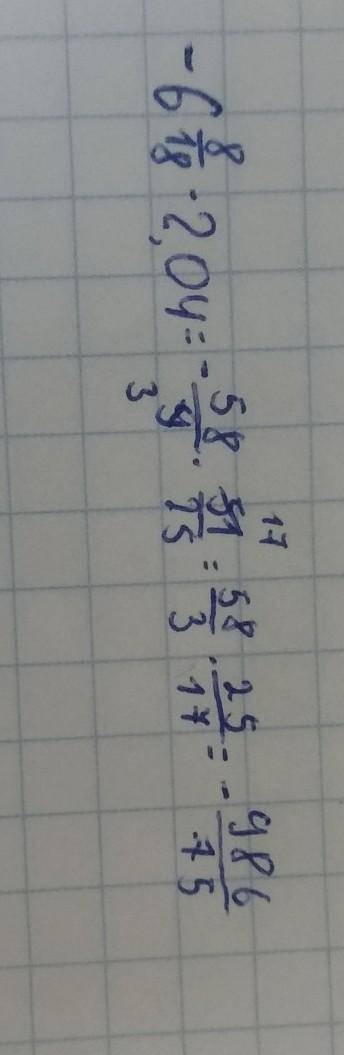 -6 8/18 · 2,04 = - 58/9 · 51/75 = 58/3 · 25/17 = - 986/75
3 17